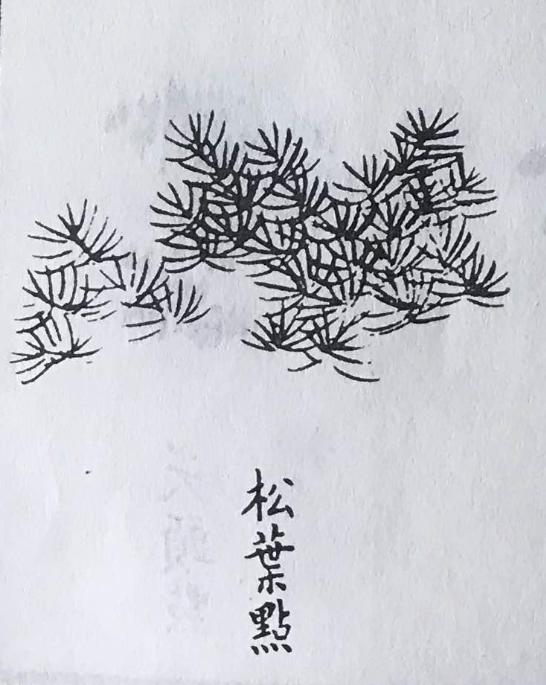 松葉點